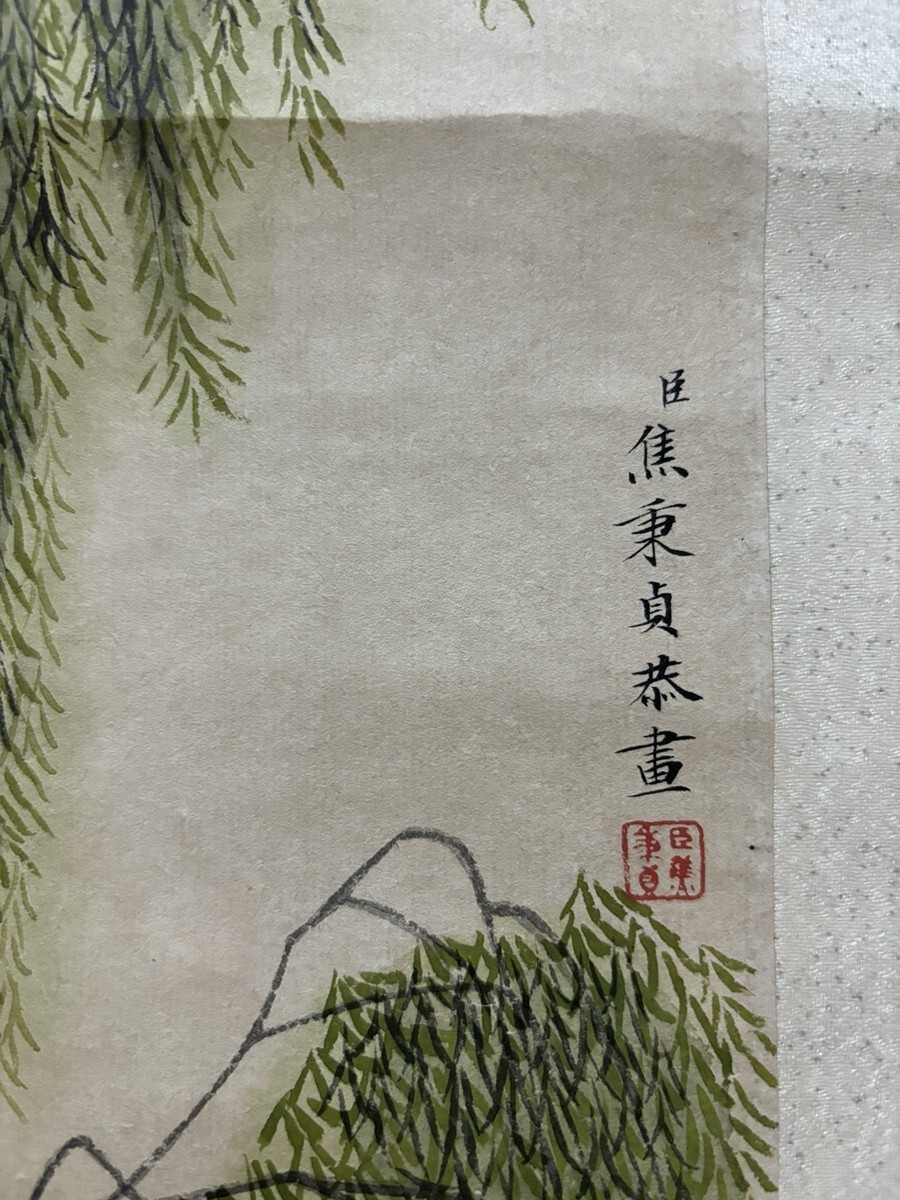 臣焦秉貞恭畫
臣焦
秉貞